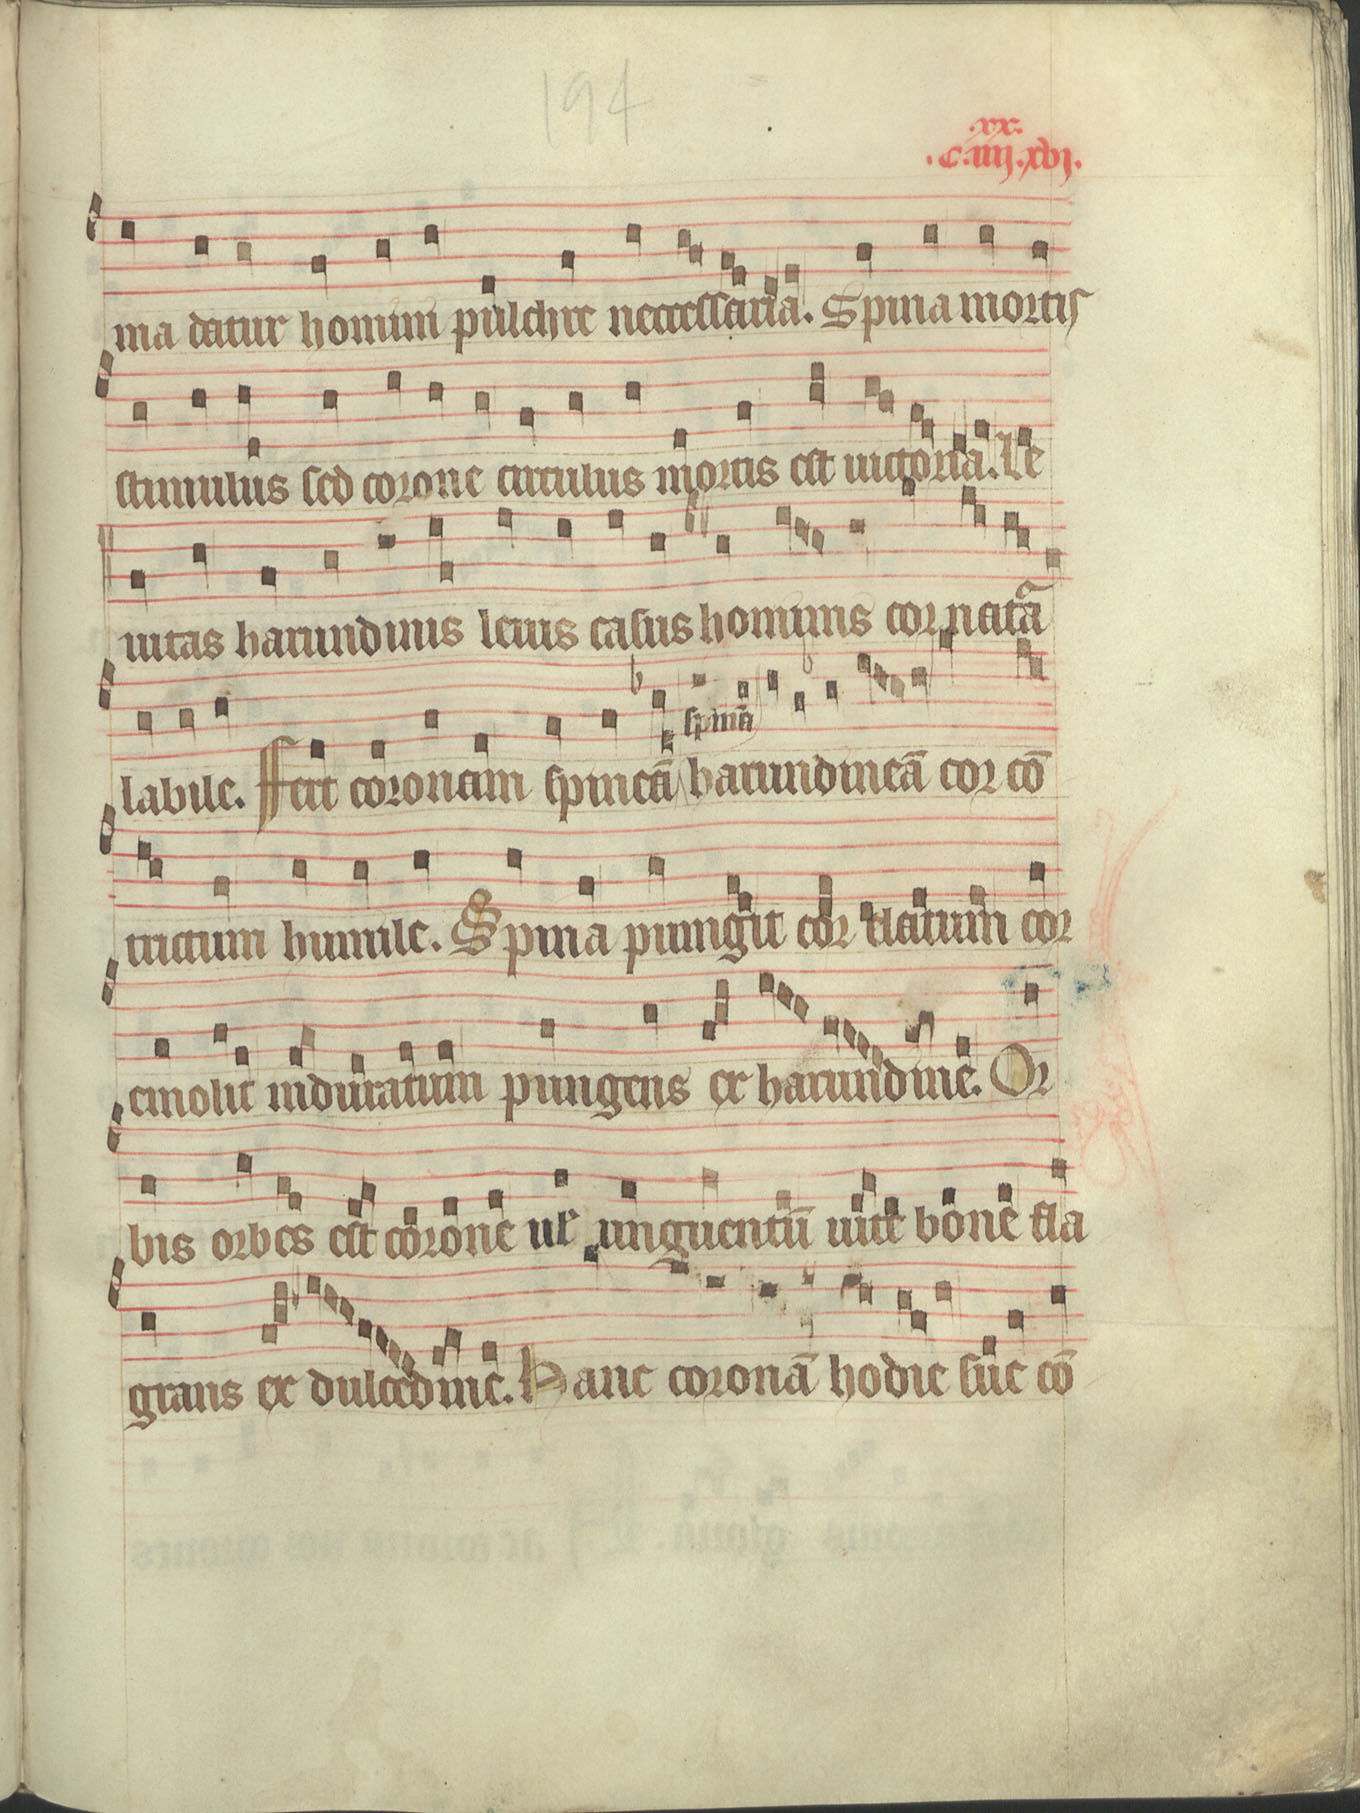 194
.xx.
.c.iiij.xvj.
ma datur homini pulchre neccessaria. Spina mortis
stimulus sed corone circulus mortis est uictoria. Le
uitas harundinis leuis casus hominis cor notatā
labile. Fert coronam spineā spinā harundineā cor cō
trictum humile. Spina pungit cor elatum cor
emolit induratum pungens ex harundine. Or
bis orbes est corone uł unguentū uite bone fla
grans ex dulcedine. Hanc coronā hodie sūe cō